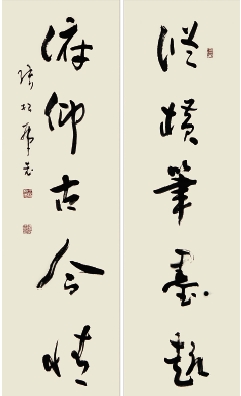 縱橫筆墨趣
俯仰古今情